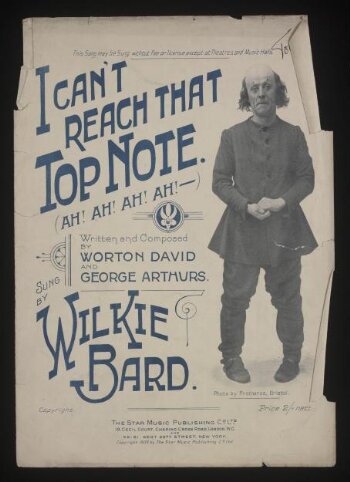 This Song may be Sung without Fee or License except at Theatres and Music Halls.
I CAN'T
REACH THAT
TOP NOTE.
(AH! AH! AH! AH!—)
Written and Composed
BY
WORTON DAVID
AND
GEORGE ARTHURS.
SUNG
BY
WILKIE
BARD.
Photo by Protheroe, Bristol.
Copyright.
Price
THE STAR MUSIC PUBLISHING Co LTD
CECIL COURT, CHARING CROSS ROAD LONDON. W.C.
AND
WEST 29TH STREET, NEW YORK.
Copyright by The Star Music Publishing Co Ltd